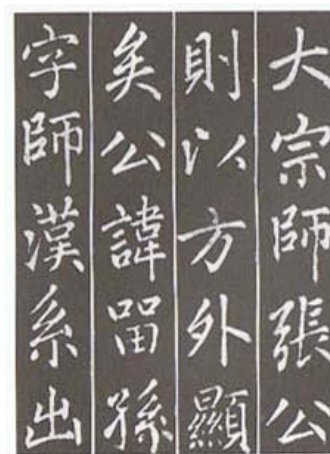 大宗師張公
則以方外顯
矣公諱留孫
字師漢系出